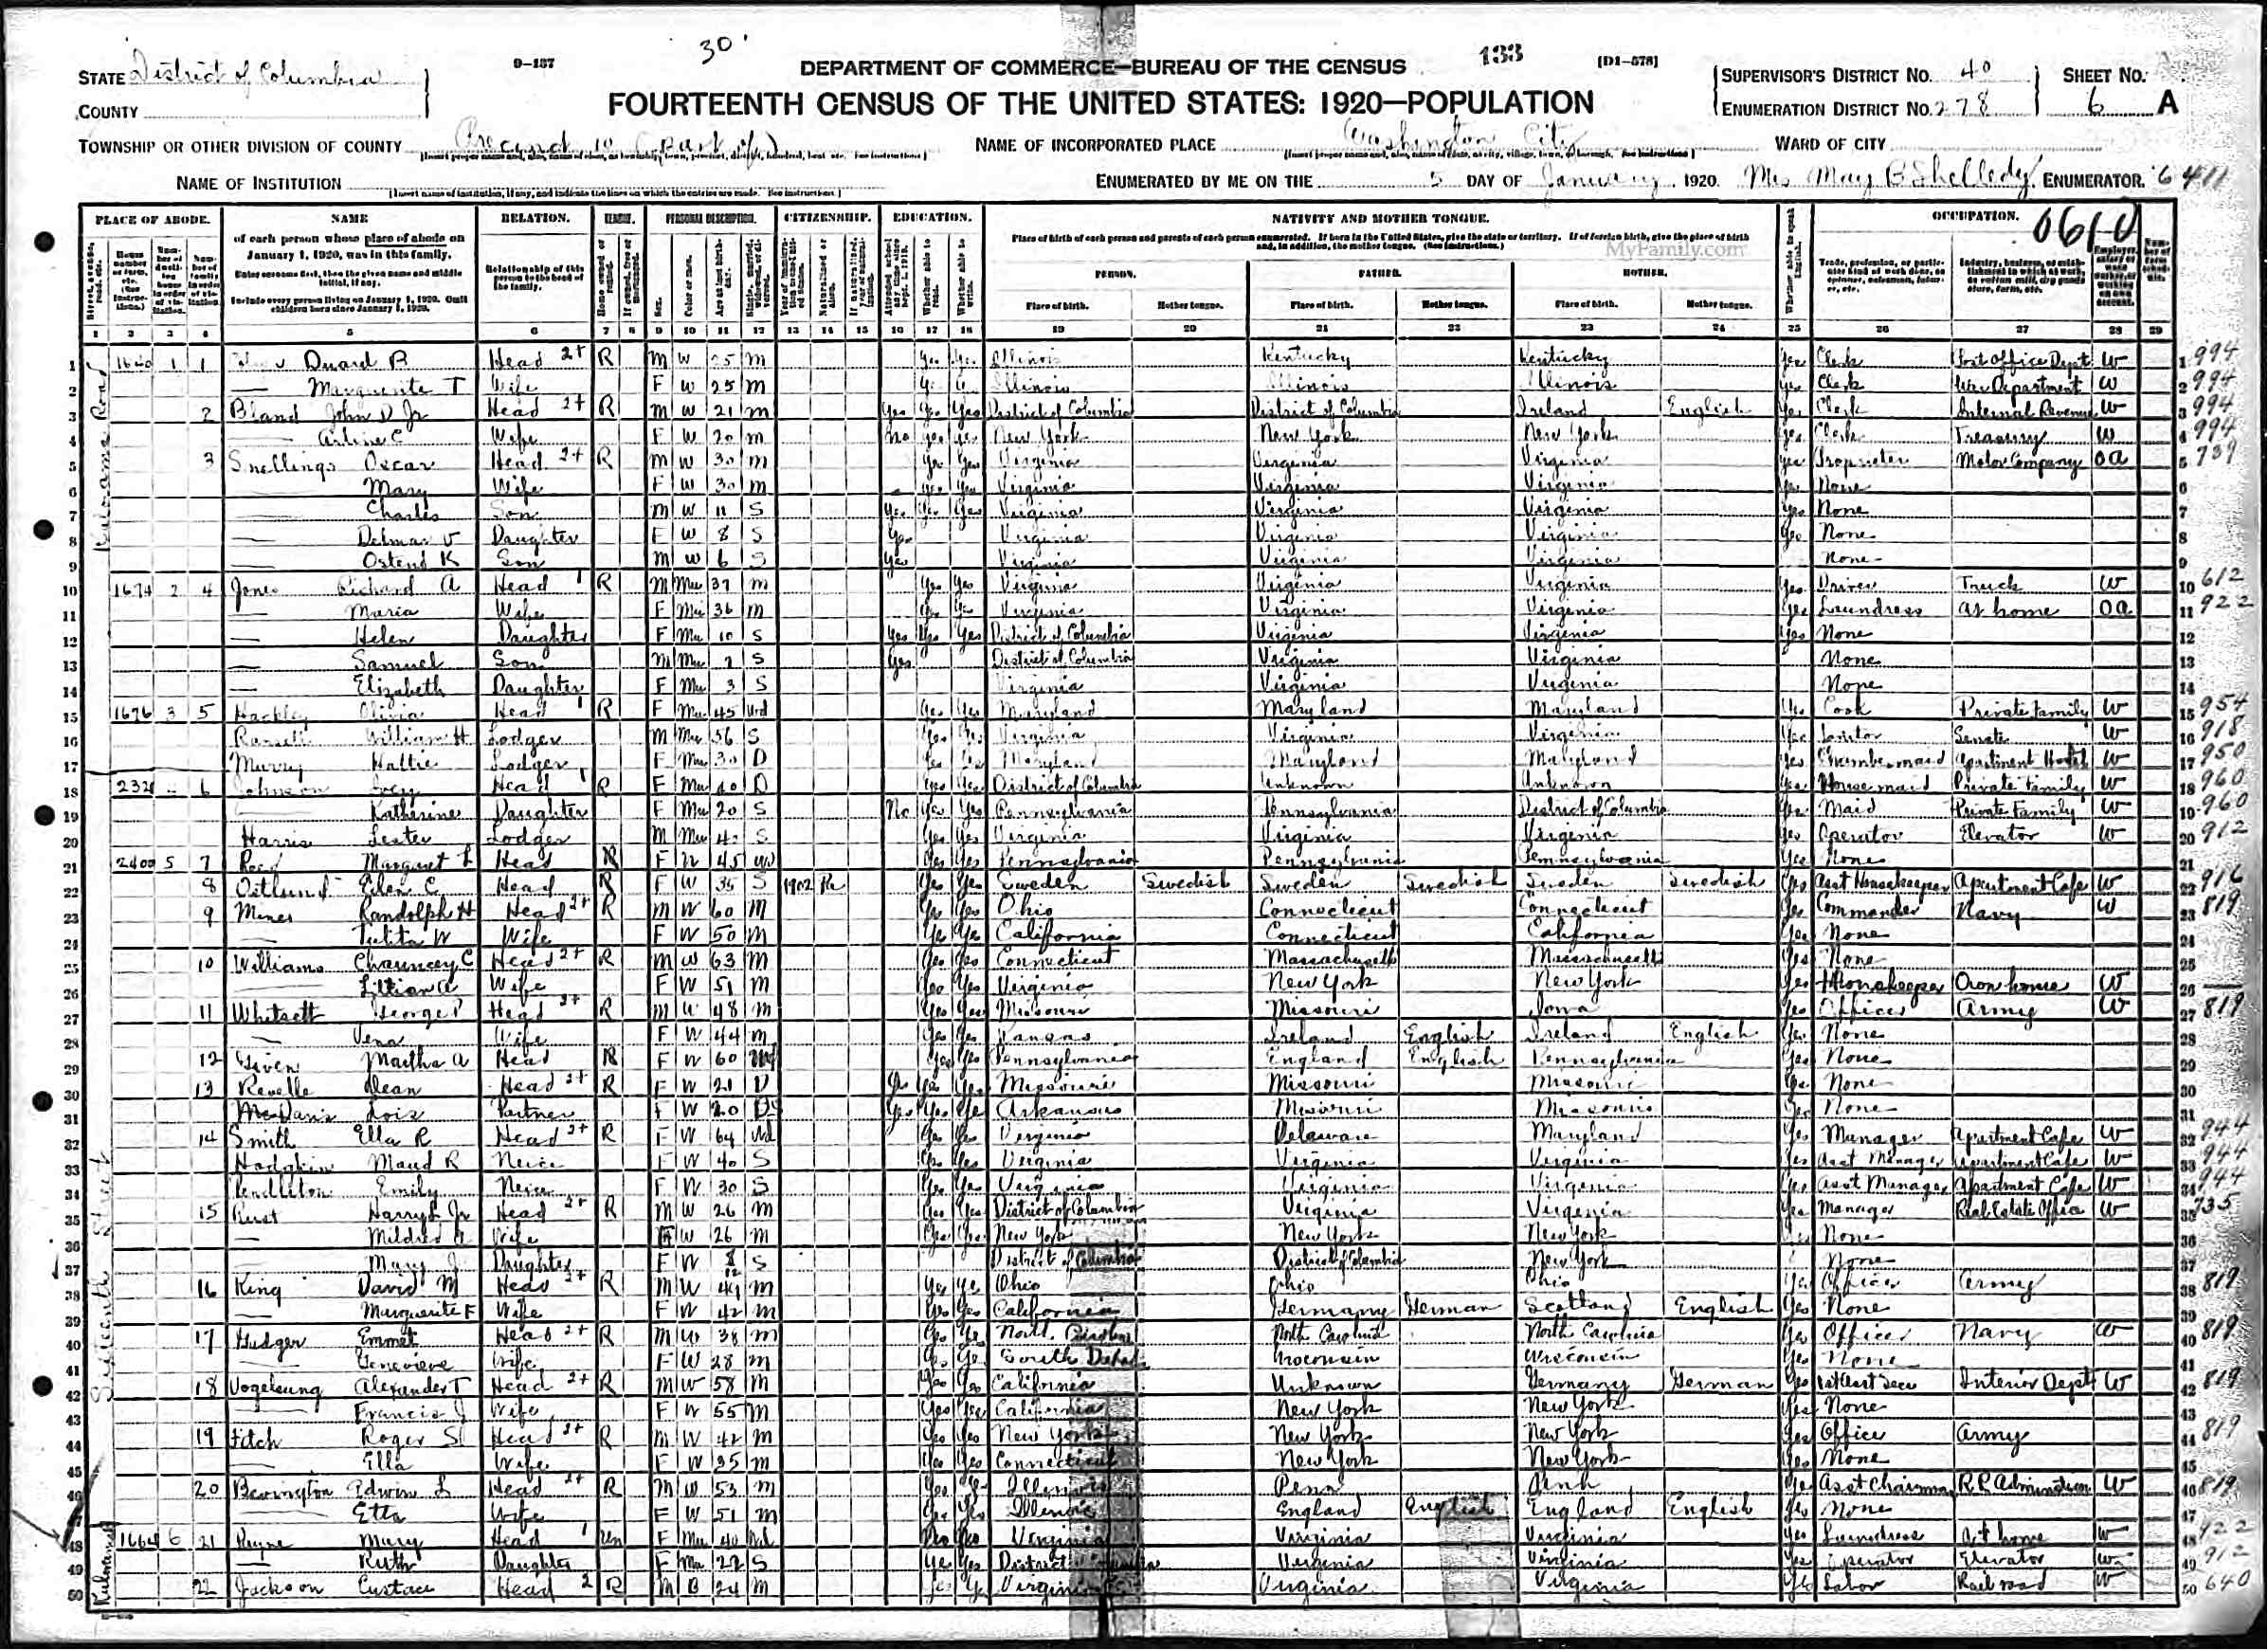 30'
9-137
133
[D1-578]
STATE District of Columbia
DEPARTMENT OF COMMERCE—BUREAU OF THE CENSUS
SUPERVISOR'S DISTRICT NO. 40
SHEET NO.
COUNTY
FOURTEENTH CENSUS OF THE UNITED STATES: 1920—POPULATION
ENUMERATION DISTRICT NO. 278
6 A
TOWNSHIP OR OTHER DIVISION OF COUNTY Precinct 10 (part of)
NAME OF INCORPORATED PLACE Washington City
WARD OF CITY
NAME OF INSTITUTION
ENUMERATED BY ME ON THE 5 DAY OF January, 1920. Mrs May B Shelledy ENUMERATOR.
PLACE OF ABODE. NAME RELATION. TENURE. PERSONAL DESCRIPTION. CITIZENSHIP. EDUCATION. NATIVITY AND MOTHER TONGUE. OCCUPATION.
of each person whose place of abode on January 1, 1920, was in this family.
Enter surname first, then the given name and middle initial, if any.
Include every person living on January 1, 1920. Omit children born since January 1, 1920.
Relationship of this person to the head of the family.
Place of birth of each person and parents of each person enumerated. If born in the United States, give the state or territory. If of foreign birth, give the place of birth and, in addition, the mother tongue. (See instructions.)
MyFamily.com
PERSON. FATHER. MOTHER.
Place of birth. Mother tongue. Place of birth. Mother tongue. Place of birth. Mother tongue.
1 2 3 4 5 6 7 8 9 10 11 12 13 14 15 16 17 18 19 20 21 22 23 24 25 26 27 28 29
1 1640 1 1 Duard B Head R M W 25 M Yes Yes Illinois Kentucky Kentucky Yes Clerk Post Office Dept W 994
2 Marguerite T Wife F W 25 M Illinois Illinois Illinois Yes Clerk War Department W 994
3 2 Bland John D Jr Head R M W 21 M Yes Yes Yes District of Columbia District of Columbia Ireland English Yes Clerk Internal Revenue W 994
4 Wife F W 20 M No Yes Yes New York New York New York Yes Clerk Treasury W 994
5 3 Snellings Oscar Head R M W 30 M Yes Yes Virginia Virginia Virginia Yes Proprietor Motor Company OA 739
6 Mary Wife F W 30 M Yes Yes Virginia Virginia Virginia Yes None
7 Charles Son M W 11 S Yes Yes Yes Virginia Virginia Virginia Yes None
8 Delmar V Daughter F W 8 S Yes Virginia Virginia Virginia Yes None
9 Ostend K Son M W 6 S Yes Virginia Virginia Virginia None
10 1674 2 4 Jones Richard A Head R M Mu 37 M Yes Yes Virginia Virginia Virginia Yes Driver Truck W 612
11 Maria Wife F Mu 36 M Yes Yes Virginia Virginia Virginia Yes Laundress At home OA 922
12 Helen Daughter F Mu 10 S Yes Yes Yes District of Columbia Virginia Virginia Yes None
13 Samuel Son M Mu S Yes District of Columbia Virginia Virginia None
14 Elizabeth Daughter F Mu 3 S Virginia Virginia Virginia None
15 1676 3 5 Hackley Olivia Head R F Mu 45 Wd Yes Yes Maryland Maryland Maryland Yes Cook Private Family W 954
16 William H Lodger M Mu 56 S Yes Yes Virginia Virginia Virginia Yes Janitor Senate W 918
17 Murry Hattie Lodger F Mu 30 D Yes Yes Maryland Maryland Maryland Yes Chambermaid Apartment Hotel W 950
18 6 Johnson Head R F Mu 40 D Yes Yes District of Columbia Unknown Unknown Yes Housemaid Private Family W 960
19 Katherine Daughter F Mu 20 S No Yes Yes Pennsylvania Pennsylvania District of Columbia Yes Maid Private Family W 960
20 Harris Lester Lodger M Mu S Yes Yes Virginia Virginia Virginia Yes Operator Elevator W 912
21 2400 5 7 Margaret L Head R F W 45 Wd Yes Yes Pennsylvania Pennsylvania Pennsylvania Yes None
22 8 Ostlund Ellen C Head R F W 35 S 1902 Yes Yes Sweden Swedish Sweden Swedish Sweden Swedish Yes Asst Housekeeper Apartment Cafe W 916
23 9 Miner Randolph H Head R M W 60 M Yes Yes Ohio Connecticut Connecticut Yes Commander Navy W 819
24 Tulita W Wife F W 50 M Yes Yes California Connecticut California Yes None
25 10 Williams Chauncey C Head R M W 63 M Yes Yes Connecticut Massachusetts Massachusetts Yes None
26 Lillian A Wife F W 51 M Yes Yes Virginia New York New York Yes Housekeeper Own home W
27 11 Whitsett George P Head R M W 48 M Yes Yes Missouri Missouri Iowa Yes Officer Army W 819
28 Vena Wife F W 44 M Yes Yes Kansas Ireland English Ireland English Yes None
29 12 Given Martha A Head R F W 60 Wd Yes Yes Pennsylvania England English Pennsylvania Yes None
30 13 Revelle Dean Head R F W 21 D Yes Yes Yes Missouri Missouri Missouri Yes None
31 Lois Partner F W 20 Yes Yes Yes Arkansas Missouri Missouri Yes None
32 14 Smith Ella R Head R F W 64 Wd Yes Yes Virginia Delaware Maryland Yes Manager Apartment Cafe W 944
33 Hodgkin Maud R Neice F W 40 S Yes Yes Virginia Virginia Virginia Yes Asst Manager Apartment Cafe W 944
34 Pendleton Emily Neice F W 30 S Yes Yes Virginia Virginia Virginia Yes Asst Manager Apartment Cafe W 944
35 15 Rust Harry L Jr Head R M W 26 M Yes Yes District of Columbia Virginia Virginia Yes Manager Real Estate Office W 735
36 Mildred Wife F W 26 M Yes Yes New York New York New York Yes None
37 Mary J Daughter F W S District of Columbia District of Columbia New York None
38 16 King David M Head R M W 49 M Yes Yes Ohio Ohio Ohio Yes Officer Army 819
39 Marguerite F Wife F W 42 M Yes Yes California Germany German Scotland English Yes None
40 17 Gudger Emmet Head R M W 38 M Yes Yes North Carolina North Carolina North Carolina Yes Officer Navy W 819
41 Genevieve Wife F W 28 M Yes Yes South Dakota Wisconsin Wisconsin Yes None
42 18 Vogelsang Alexander T Head R M W 58 M Yes Yes California Unknown Germany German Yes 1st Asst Secy Interior Dept W 819
43 Francis J Wife F W 55 M Yes Yes California New York New York Yes None
44 19 Fitch Roger S Head R M W 42 M Yes Yes New York New York New York Yes Officer Army 819
45 Ella Wife F W 35 M Yes Yes Connecticut New York New York Yes None
46 20 Bevington Edwin L Head R M W 53 M Yes Yes Illinois Penn Penn Yes Asst Chairman R R Administration W 819
47 Etta Wife F W 51 M Yes Yes Illinois England English England English Yes None
48 1664 6 21 Payne Mary Head Un F Mu 40 Wd No No Virginia Virginia Virginia Yes Laundress At home W 922
49 Ruth Daughter F Mu 22 S Yes Yes District Columbia Virginia Virginia Yes Operator Elevator W 912
50 22 Jackson Eustace Head R M B 24 M Yes Yes Virginia Virginia Virginia Yes Labor Railroad W 640
Kalorama Road
Sixteenth Street
Kalorama